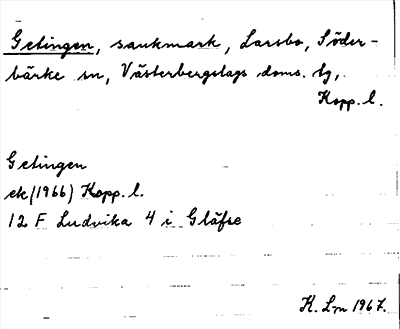 Getingen, sankmark, Larsbo, Söder-
bärke sn, Västerbergslags doms. tg,
Kopp. l.
Getingen
ek (1966) Kopp. l.
12 F Ludvika 4 i Gläfse
K. Lm 1967.